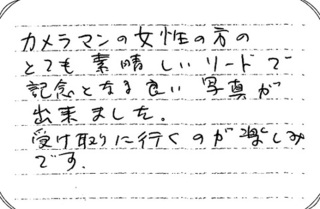 カメラマンの女性の方の
とても素晴しいリードで
記念となる良い写真が
出来ました。
受け取りに行くのが楽しみ
です.